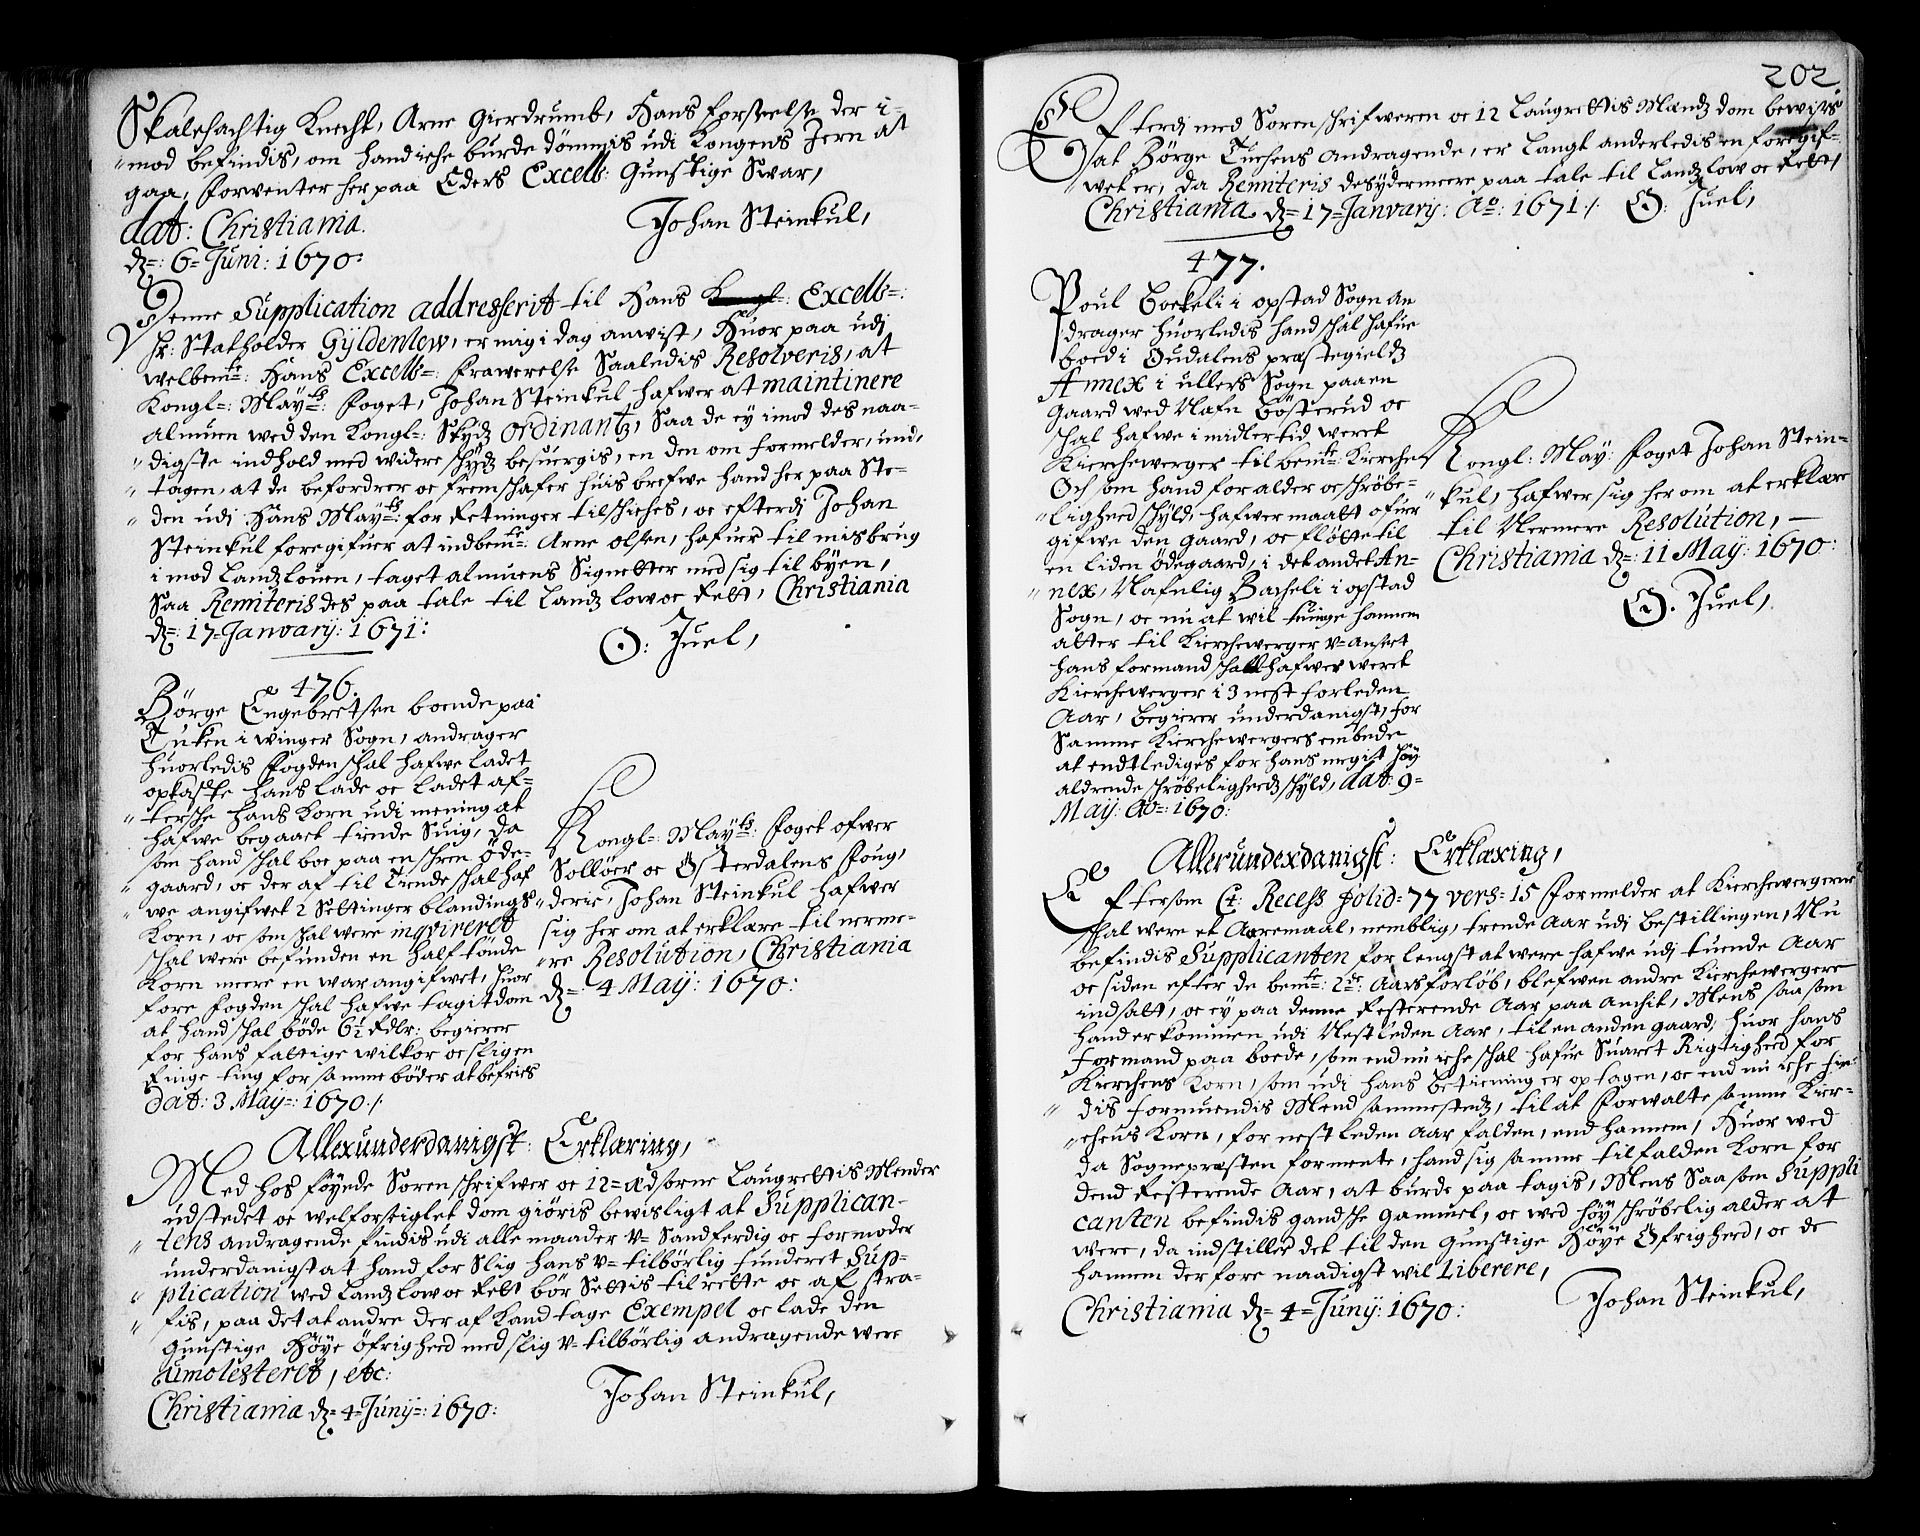 Skalchachtig Knecht, Arne Gierdrumb, Hans forseelse der i-
mod befindis, om hand iche burde dömmis udi Kongens Jern at
gaa, forwenter her paa Eders Excell: Gunstige Swar,
dat: Christiania. Johan Steinkul,
dz: 6 Juni: 1670:
Denne Supplication addresserit til Hans Excell:
Hr: Statholder Gyldenlew, er mig i dag anwist, Huor paa udi
welbemte: Hans Excell: frawerelse Saaledis Resolveris, at
Kongl: Mayts: foget, Johan Steinkul hafwer at maintinere
almuen wed den Kongl: Skydz ordinantz, Saa de ey imod des naa-
digste indhold med widere skydz besuergis, en den om formelder, und-
tagen, at de befordrer oc fremskafer huis brefwe hand her paa Ste-
den udi Hans Mayts: forRetninger tilskiches, oc efterdi Johan
Steinkul foregifuer at indbemte: Arne Olsen, hafuer til misbrug
imod Landzlouen, taget almuens Signetter med sig til byen,
Saa Remiteris des paa tale til Landz low oc Rett, Christiania
dz: 17 January: 1671: O: Juel,
476.
Börge Engebretsen boende paa
Tuken i Winger Sogn, andrager
huorledis fogden skal hafwe ladet
opkaste hans lade oc ladet af-
terske hans Korn udi mening at
hafwe begaaet tiende Suig, da
som hand skal boe paa en skren Öde-
gaard, oc der af til Tiende skal haf
we angifwet 2 Settinger blandings
Korn, oc som skal were inqvireret
skal were befunden en half tönde
Korn mere en war angifwet, huor
fore fogden skal hafwe tagit dom
at hand skal böde 6½ Rdlr: begierer
for hans fattige wilkor oc sligen
Ringe ting for samme böder at befries
dat: 3 May: 1670 /.
Kongl: Mayts: foget ofwer
Sollöer oc Österdalens foug-
derie, Johan Steinkul hafwer
sig her om at erklære til nerme-
re Resolution, Christiania
dz 4 May: 1670:
Allerunderdanigst: Erklæring,
Med hos föyede Sorenskrifwer oc 12 Ædsorne Laugrettis Mender
udstedet oc welforseiglet dom giöris bewisligt at Supplican-
tens andragende findis udi alle maader u-Sandferdig oc formoder
underdanigst at hand for Slig hans u-tilbörlig funderet Sup-
plication wed Landz low oc Rett bör Settis til rette oc af stra-
fis, paa det at andre der af kand tage Exempel oc lade den
Gunstige Höye öfrighed med slig u-tilbörlig andragende were
umolesteret, etc:
Christiania dz 4 Juny: 1670: Johan Steinkul,
202
Efterdi med Sorenskrifweren oc 12 Laugrettis Mændz dom bewiises
at Börge Tuchens andragende, er Langt anderledis en foregif-
wet er, da Remiteris des ydermeere paa tale til Landz low oc Rett,
Christiania dz 17 January: Ao: 1671 /. O: Juel,
477.
Poul Bockeli i opstad Sogn an
drager huorledis hand skal hafue
boed i Oudalens prestegieldz
Annex i Ullers Sogn paa en
Gaard wed Nafn Bösterud oc
skal hafwe i midlertid weret
Kierchewerger til bemte: Kirche
Och som hand for alder oc skröbe-
lighed skyld, hafwer maatt ofuer
gifwe den gaard, oc flötte til
en liden ödegaard, i det andet An-
nex, Nafnlig Bacheli i opstad
Sogn, oc nu at wil tuinge hannem
atter til Kierchewerger u-anseet
hans formand skal hafwer weret
Kierchewerger i 3 nest forleden
Aar, begierer underdanigst, for
Samme Kierchewergers embede
at entlediges for hans megit höy
aldrende skröbeligheedz skyld, dat: 9
May: Ao: 1670:
Kongl: May: foget Johan Stein-
kul, hafwer sig her om at erklære
til Nermere Resolution,
Christiania dz 11 May: 1670:
O. Juel,
Allerunderdanigst: Erklæring,
Eftersom Ct: Recess folid: 77 vers: 15 formelder at Kierchewergerne
skal were et Aaremaal, nemblig, trende Aar udi bestillingen, Nu
befindis Supplicanten for lengst at were hafwe udi tuende Aar
oc siden efter de bemte: 2de: Aars forlöb, blefwen andre Kierchewergere
indsatt, oc ey paa denne Resterende Aar paa anckit, Mens saa som
hand er kommen udi Nest leden Aar, til en anden gaard, huor hans
Formand paa boede, som end nu iche skal hafue Suaret Rigtighed for
Kierchens Korn, som udi hans betiening er optagen, oc end nu iche fin-
dis formuendis Mend sammestedz, til at forwalte samme Kier-
chens Korn, for nest leden Aar falden, end hannem, Huor wed
da Sognepresten formente, hand sig samme tilfalden Korn for
dend Resterende Aar, at burde paa tagis, Mens Saa som Suppli
canten befindis gandske gammel, oc wed höy skröbelig alder at
were, da indstilles det til den gunstige Höye Öfrighed, oc de
hannem der fore naadigst wil Liberere,
Christiania dz 4 Juny: 1670: Johan Steinkul,